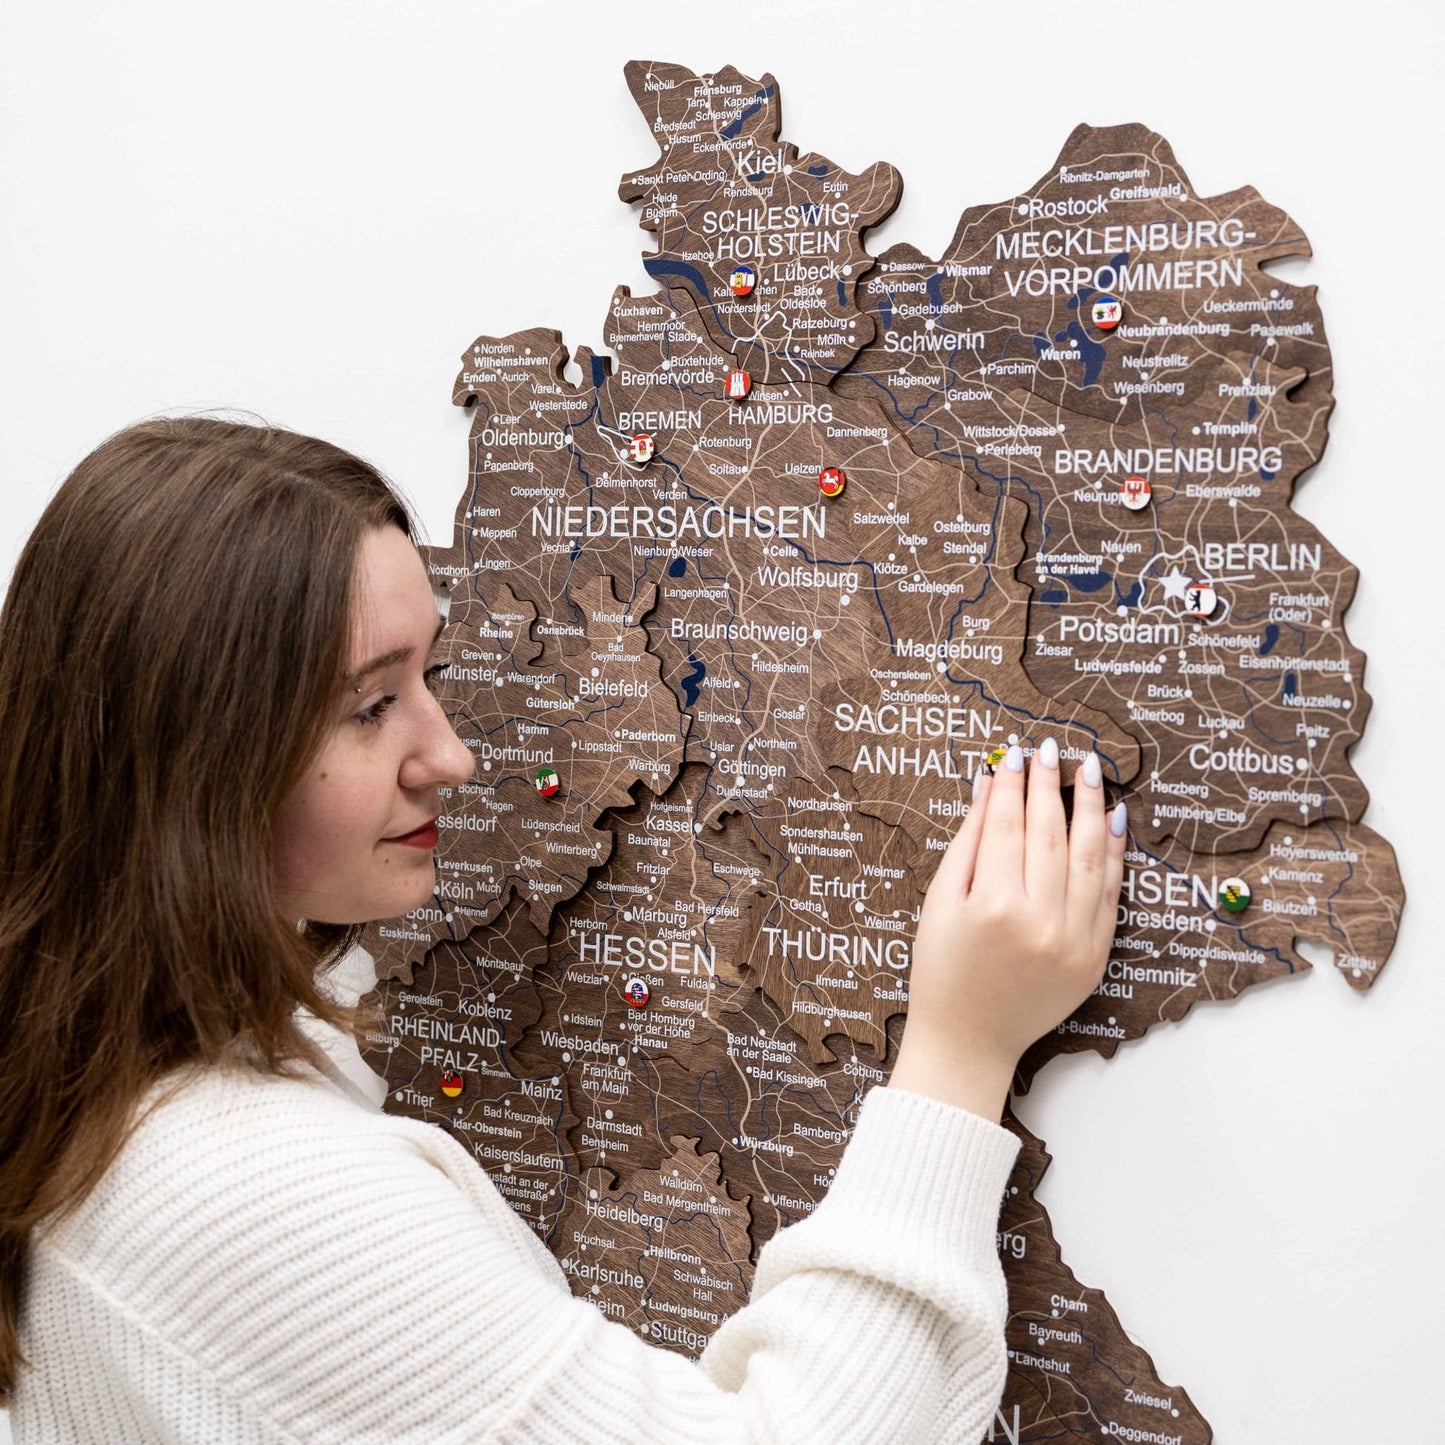 Niebüll
Flensburg
Tarp
Kappeln
Schleswig
Bredstedt
Husum
Eckernförde
Kiel
Sankt Peter-Ording
Rendsburg
Eutin
Heide
Büsum
SCHLESWIG-
HOLSTEIN
Itzehoe
Lübeck
Bad
Oldesloe
Norderstedt
Ratzeburg
Mölln
Reinbek
Ribnitz-Damgarten
Greifswald
Rostock
MECKLENBURG-
VORPOMMERN
Dassow
Wismar
Schönberg
Gadebusch
Ueckermünde
Neubrandenburg
Pasewalk
Schwerin
Waren
Neustrelitz
Parchim
Hagenow
Wesenberg
Prenzlau
Grabow
Cuxhaven
Hemmoor
Bremerhaven
Stade
Buxtehude
Bremervörde
Winsen
HAMBURG
Norden
Wilhelmshaven
Emden
Aurich
Varel
Westerstede
Leer
Oldenburg
BREMEN
Rotenburg
Dannenberg
Papenburg
Delmenhorst
Soltau
Uelzen
Cloppenburg
Verden
Haren
NIEDERSACHSEN
Meppen
Vechta
Nienburg/Weser
Celle
Nordhorn
Lingen
Wolfsburg
Langenhagen
Braunschweig
Hildesheim
Alfeld
Goslar
Einbeck
Uslar
Northeim
Göttingen
Duderstadt
Wittstock/Dosse
Perleberg
Templin
BRANDENBURG
Eberswalde
Nauen
Brandenburg
an der Havel
BERLIN
Potsdam
Frankfurt
(Oder)
Schönefeld
Ziesar
Ludwigsfelde
Zossen
Eisenhüttenstadt
Brück
Neuzelle
Jüterbog
Luckau
Peitz
Cottbus
Herzberg
Spremberg
Mühlberg/Elbe
Salzwedel
Osterburg
Kalbe
Stendal
Klötze
Gardelegen
Burg
Magdeburg
Oschersleben
Schönebeck
SACHSEN-
ANHALT
Halle
Ibbenbüren
Rheine
Osnabrück
Minden
Bad
Oeynhausen
Greven
Münster
Warendorf
Bielefeld
Gütersloh
Hamm
Paderborn
Dortmund
Lippstadt
Warburg
Bochum
Hagen
sseldorf
Lüdenscheid
Winterberg
Leverkusen
Olpe
Köln
Much
Siegen
Bonn
Hennef
Euskirchen
Hofgeismar
Kassel
Baunatal
Fritzlar
Eschwege
Schwalmstadt
Marburg
Bad Hersfeld
Alsfeld
Herborn
HESSEN
Wetzlar
Gießen
Fulda
Gersfeld
Idstein
Bad Homburg
vor der Höhe
Wiesbaden
Hanau
Frankfurt
am Main
Darmstadt
Bensheim
Nordhausen
Sondershausen
Mühlhausen
Weimar
Erfurt
Gotha
Weimar
THÜRING
Ilmenau
Saalfe
Hildburghausen
HSEN
Hoyerswerda
Kamenz
Bautzen
Dresden
Dippoldiswalde
Zittau
Chemnitz
Montabaur
Gerolstein
Koblenz
RHEINLAND-
PFALZ
Bitburg
Simmern
Mainz
Trier
Bad Kreuznach
Idar-Oberstein
Kaiserslautern
eustadt an der
Weinstraße
Bad Neustadt
an der Saale
Bad Kissingen
Coburg
Bamberg
Würzburg
Uffenheim
Walldürn
Bad Mergentheim
Heidelberg
Bruchsal
Heilbronn
Karlsruhe
Schwäbisch
Hall
Ludwigsburg
Stuttgar
Cham
Bayreuth
Landshut
Zwiesel
Deggendorf